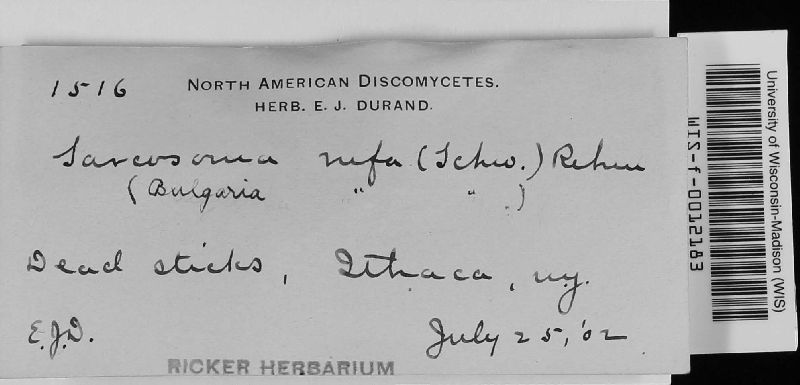 1516
NORTH AMERICAN DISCOMYCETES.
HERB. E. J. DURAND.
Sarcosoma rufa (Schw.) Rehm
(Bulgaria " " .)
Dead sticks, Ithaca, N.Y.
E.J.D.
July 25, '02
RICKER HERBARIUM
WIS-f-0012183
University of Wisconsin-Madison (WIS)